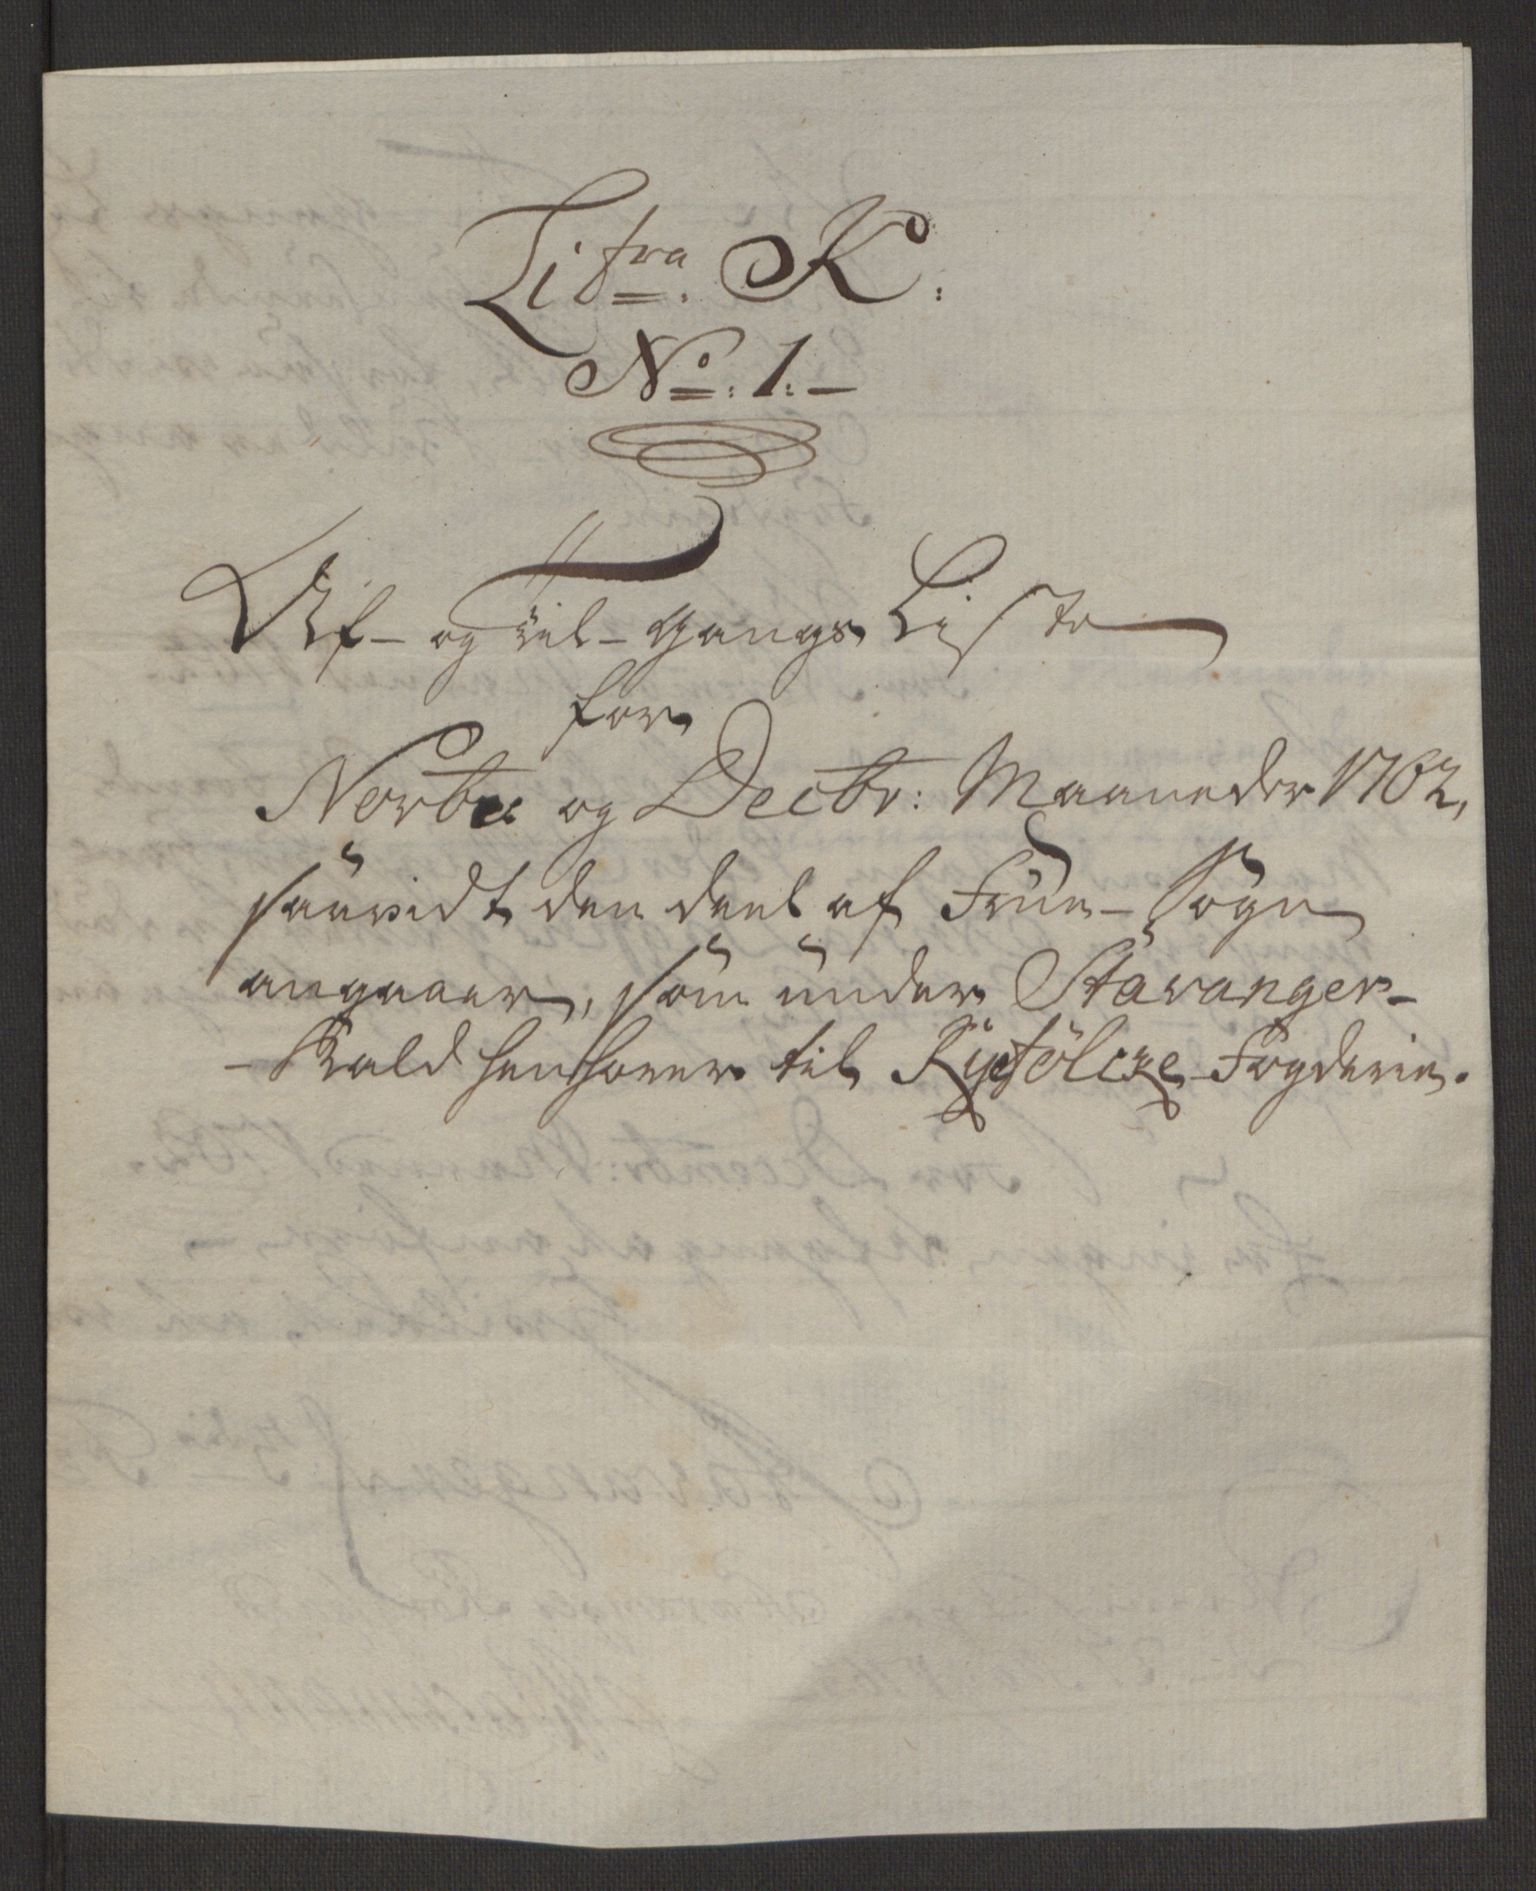 Litra. K:
No: 1. –
Af- og Til-Gangs Liste
for
Novbr: og Decbr: Maaneder 1762,
saavidt den deel af Frue-Sogn
angaaer, som under Stavanger-
-Kald henhører til Ryefölcke Fogderie.